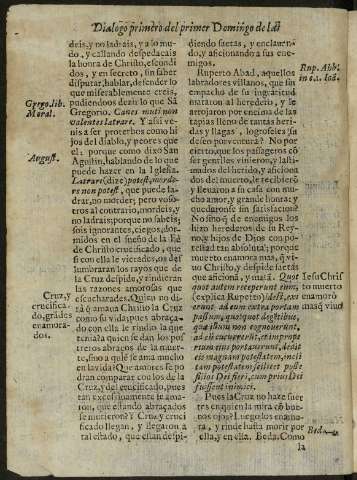 Dialogo primero del primer Domingo de la
deis, y no ladrais, y a lo mu-
do, y callando despedaçais
la honra de Christo, escondi
dos, y en secreto, sin saber
disputar, hablar, defender lo
que miserablemente creis,
pudiendoos dezir lo que Sã
Gregorio. Canes muti non
valentes latrare. Y assi ve-
nis a ser proverbos como hi
jos del diablo, y peores que
el: porque como dixo San
Agustin, hablando de lo que
puede hazer en la Iglesia.
Latrare (dize) potest, morde-
re non potest, que puede la-
drar, no morder; pero voso-
tros al contrario, mordeis, y
no ladrais; porque no sabeis;
sois ignorantes, ciegos, dor-
midos en el sueño de la Fè
de Christo crucificado, que
si con ella le vierades, os des
lumbraran los rayos que de
la Cruz despido, y rindieran
las razones amorosas que
escucharades. Quien no di-
rà q̃ amaua Christo la Cruz
como su vida, pues abraça-
do con ella le rindio la que
tenia: la quien se dan los pos
treros abraços de la muer-
te, sino a quiẽ se ama mucho
en la vida? Que amores se po
dran comparar con los de la
Cruz, y del crucificado, pues
tan excessiuamente se ama-
ron, que estando abraçados
se murieron? Y Cruz y cruci
ficado llegan, y llegaron a
tal estado, que están despi-
Gregolib.
Moral.
August.
Cruz, y
crucifica-
do, grãdes
enamora-
dos.
diendo saetas, y enclauan-
do, y aficionando a sus ene-
migos.
Ruperto Abad, aquellos
labradores villanos, que sin
empacho de su ingratitud
mataron al heredero, y le
arrojaron por encima de las
tapias lleno de tantas heri-
das y llagas, logroseles su
desseo por ventura? No por
cierto; que los passageros cõ
ser gentiles vinieron, y lasti-
mados del herido, y aficiona
dos del muerto, le recibierõ
y lleuaron a su casa con mu-
cho amor, y grande honra: y
quedaronse sin satisfacion?
No sino q̃ de enemigos los
hizo herederos de su Rey-
no, y hijos de Dios con po-
testad tan absoluta; porque
muerto enamora mas, q̃ vi-
uo Christo, y despide saetas
que aficionã, y matã. Quot
quot autem receperunt eum,
(explica Ruperto) dest, ve
nerunt ad eum extra portam
passum, quotquot degẽtibus,
qui istum non cognouerunt,
ad eũ cucurrerũt, et impropè
rium eius portauerunt, dedit
eis magnam potestatem, incli
tam potestatem, scilicet posse
filios Dei fieri, cum prius Dei
fuissent inimici.
Pues la Cruz no haze suer
tes en quien la mira cõ bue-
nos ojos? Luego los enamo-
ra, y rinde hasta morir por
ella, y en ella. Beda. Como
la
Rup. Abb.
in c. 1. Ioã.
Iesu Chris
to muerto
enamorò
mas q̃ viuo
Beda